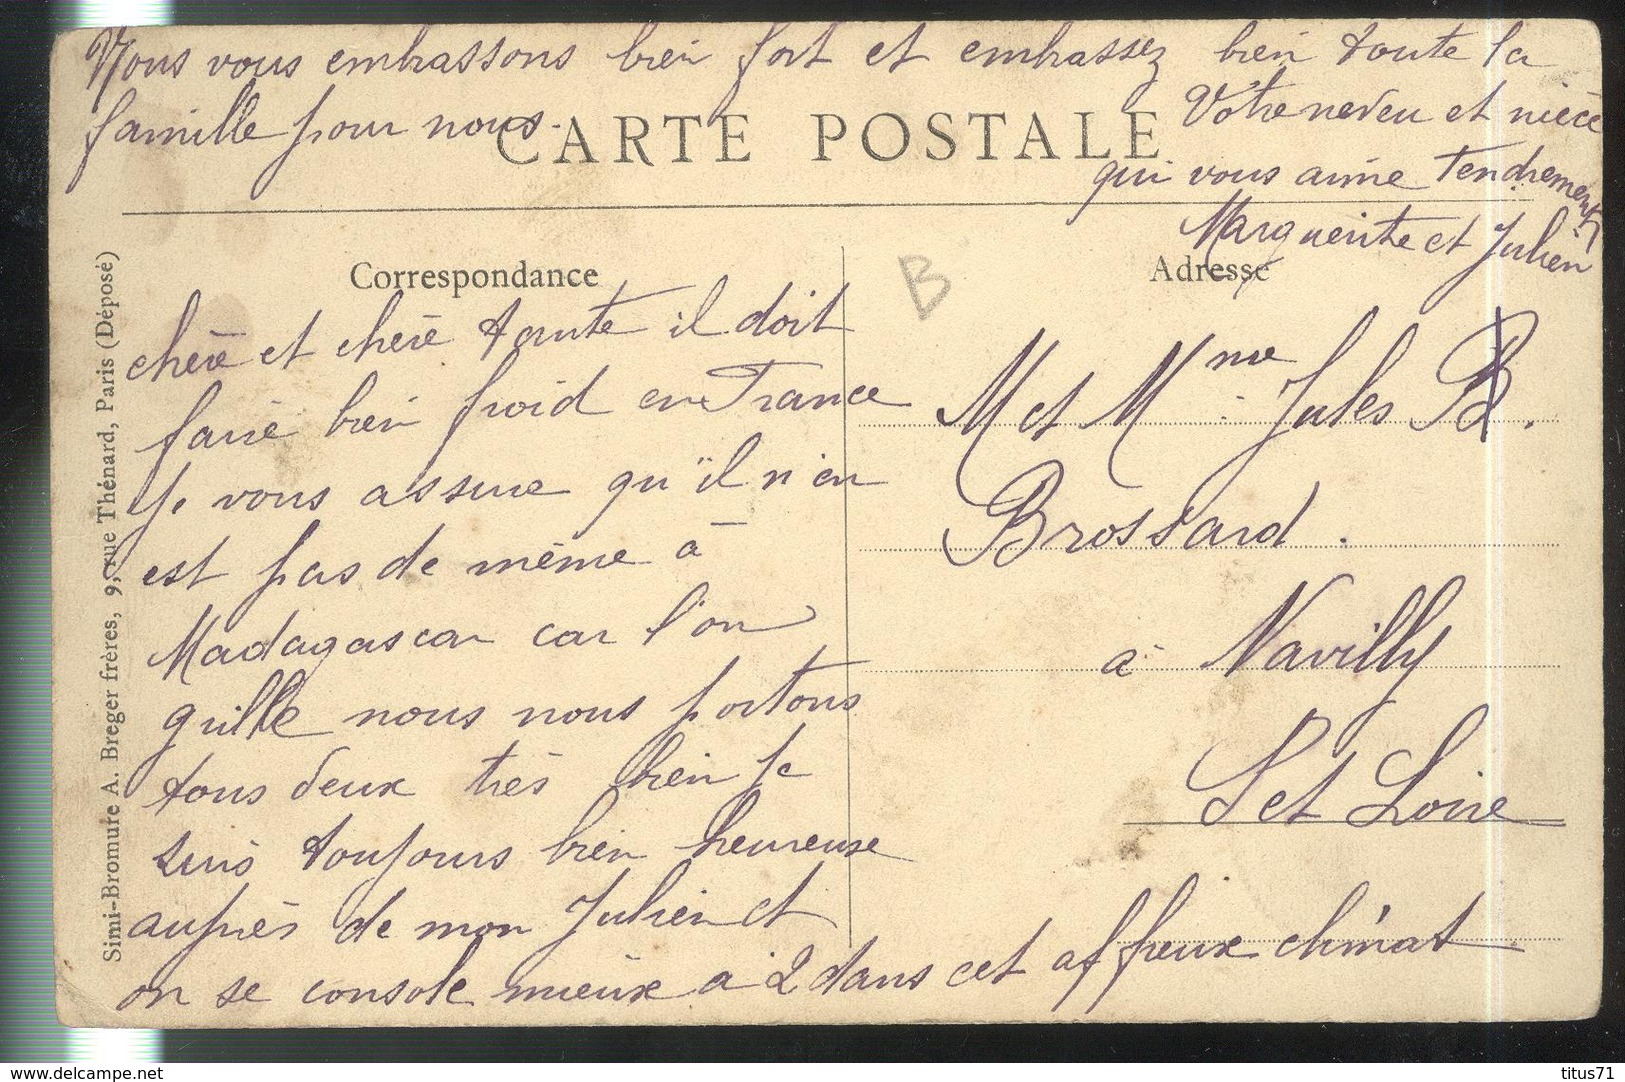 Nous vous embrassons bien fort et embrassez bien toute la
famille pour nous.
Votre neveu et nièce
qui vous aime Tendrement
Marguerite et Julien
CARTE POSTALE
Correspondance
Adresse
B
chère et chère tante il doit
faire bien froid en France
Je vous assure qu'il n'en
est pas de même à
Madagascar car l'on
grille nous nous portons
tous deux très bien je
suis toujours bien heureuse
auprès de mon Julien et
on se console mieux à 2 dans cet affreux climat
M et Mme Jules B.
Brossard.
à Navilly
S et Loire
Simi-Bromure A. Breger frères, 9, rue Thénard, Paris (Déposé)
www.delcampe.net
titus71